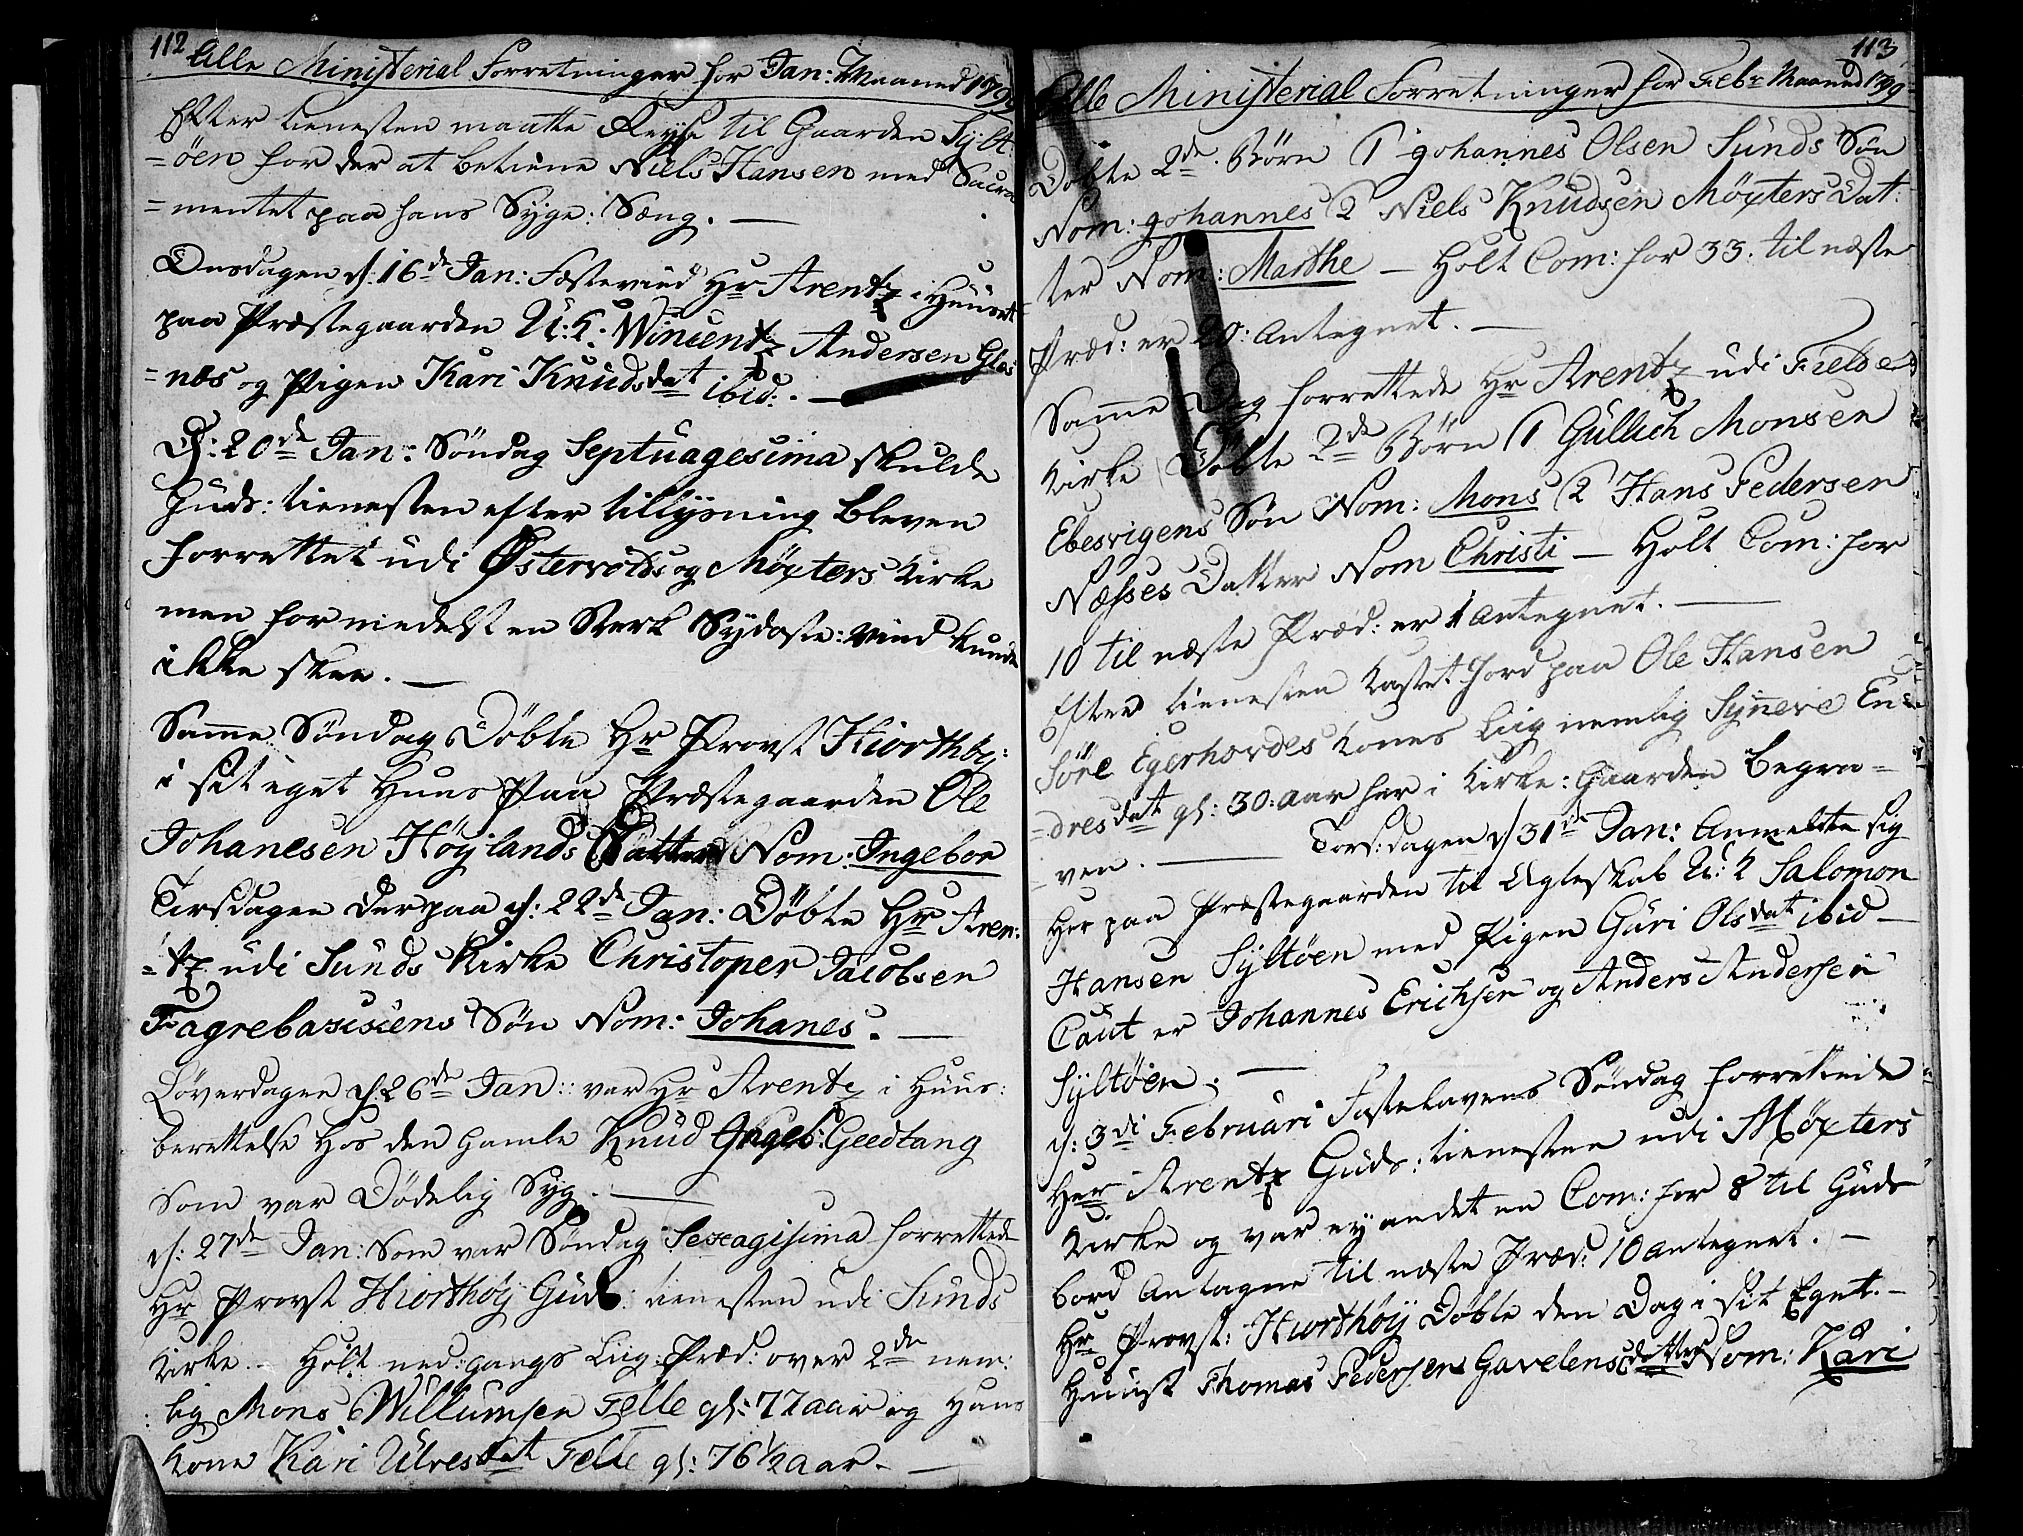 112
Alle Ministerial Forretninger for Jan: Maaned 179
Efter tienesten maatte Reyse til Gaarden Sylt:
=öen for der at betiene Niels Hansen med Sacra
=mentet paa hans Syge: Sæng. —
Onsdagen d: 16de Jan: Fæstevied Hr Arentz i Huuset
paa Præstegaarden U: K: Wincentz Andersen Glæs
=næs og Pigen Kari Knudsdat ibid: —
D: 20de Jan: Söndag Septuagesima skulde
Guds: tienesten efter tillysning bleven
forrettet udi Östervolds og Möxters Kirke
men formedelst en Sterk Sydost: vind kunde
ikke skee. —
Samme Söndag Döbte Hr Provst Hiorthöy:
i sit eget Huus paa Præstegaarden Ole
Johanesen Höylands Datter Nom: Ingebor
Tirsdagen derpaa d: 22de Jan: Döbte Hr Aren:
=tz udi Sunds Kirke Christoper Jacobsen
Fagrebasisiens Sön Nom: Johanes. —
Löverdagen d: 26de Jan: var Hr Arentz i Huus:
berettelse hos den gamle Knud Ingeb: Geedtang
som var Dödelig Syg. —
d: 27de Jan: som var Söndag Sexagisima forrettede
Hr Provst Hiorthöy Guds: tienesten udi Sunds
Kirke. — Holt ned:gangs Liig: Præd: over 2de nem:
:lig Mons Willumsen Telle gl: 77 aar og hans
Kone Kari Ulvesdat Telle gl: 76 1/2 aar. —
113
Alle Ministerial Forretninger for Febr Maaned 179
Döbte 2de Börn 1 Johannes Olsen Sunds Sön
Nom: Johannes 2 Niels Knudsen Möxters Dat:
ter Nom: Marthe — Holt Com: for 33. til næste
Præd: er 20: Antegnet. —
Samme Dag forrettede Hr Arentz udi Fielde
Kirke Döbte 2de Börn 1 Gullich Monsen
Ebesvigens Sön Nom: Mons 2 Hans Pedersen
Næsses Datter Nom Christi — Holt Com: for
10 til næste Præd: er 1 antegnet. —
Efter tienesten kastet Jord paa Ole Hansen
Söre Egerhovdes Kones Liig nemlig Synneve En=
=dresdat gl: 30: aar her i Kirke: Gaarden begra=
=ven. — Torsdagen d 31de Jan: Anmeldte sig
her paa Præstegaarden til Egteskab U: K Salomon
Hansen Syltöen med Pigen Guri Olsdat ibid —
Caut er Johannes Erichsen og Anders Andersen
Syltöen. —
d: 3di Februari Fastelavens Söndag forrettede
Her Arentz Guds: tienesten udi Möxters
Kirke og var ey andet en Com: for 8 til Guds
bord Antagne til næste Præd: 10 antegnet. —
Hr Provst: Hiorthöy Döbte den Dag i sit Eget. —
Huus Thomas Pedersens Gavelens datter Nom: Kari